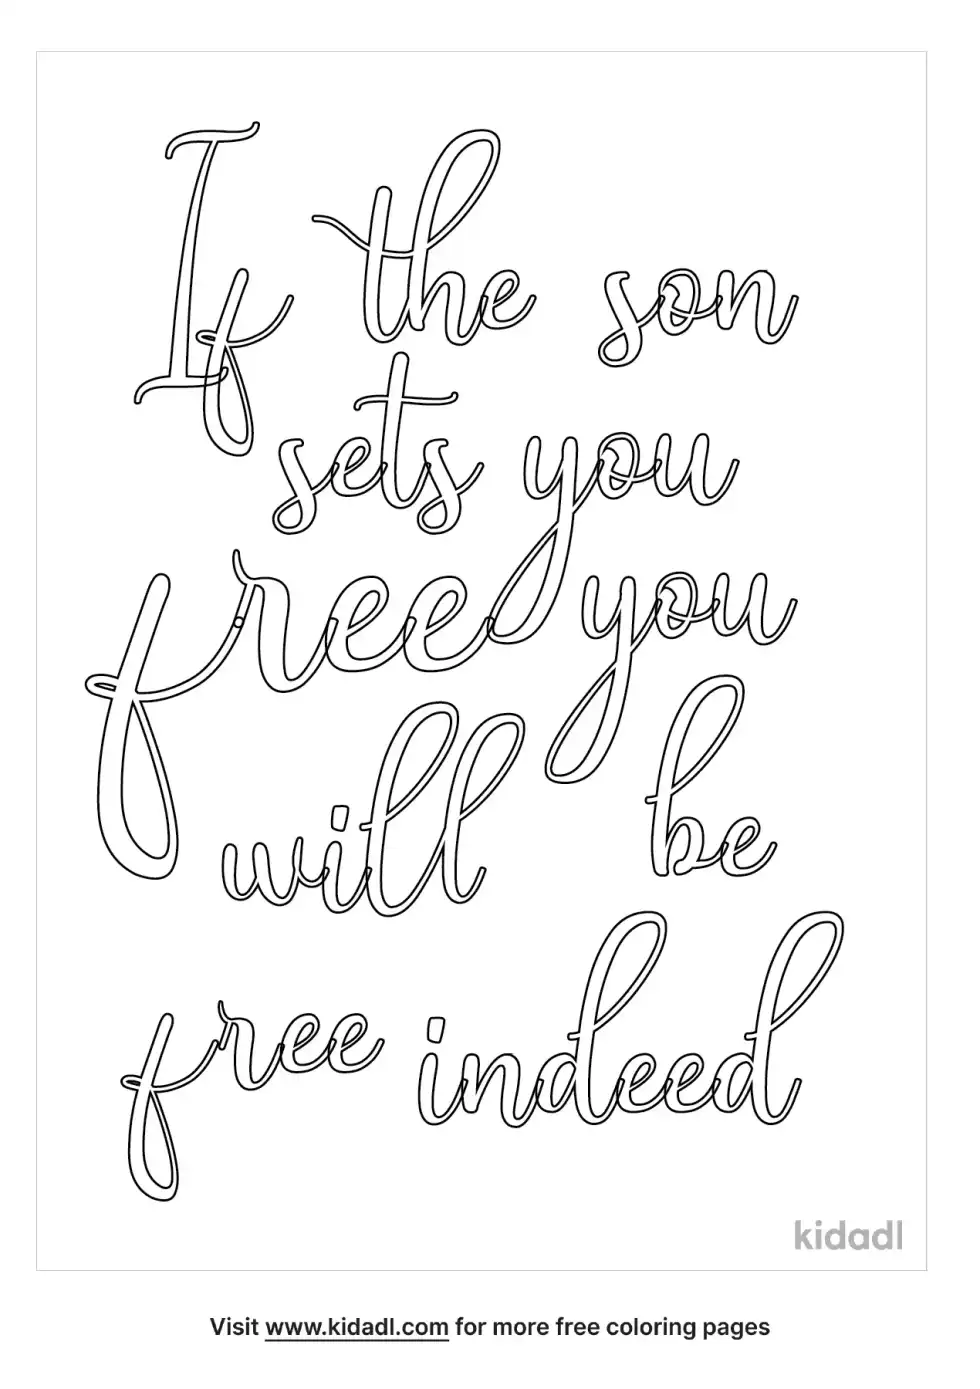 If the son
sets you
free you
will be
free indeed
kidadl
Visit www.kidadl.com for more free coloring pages